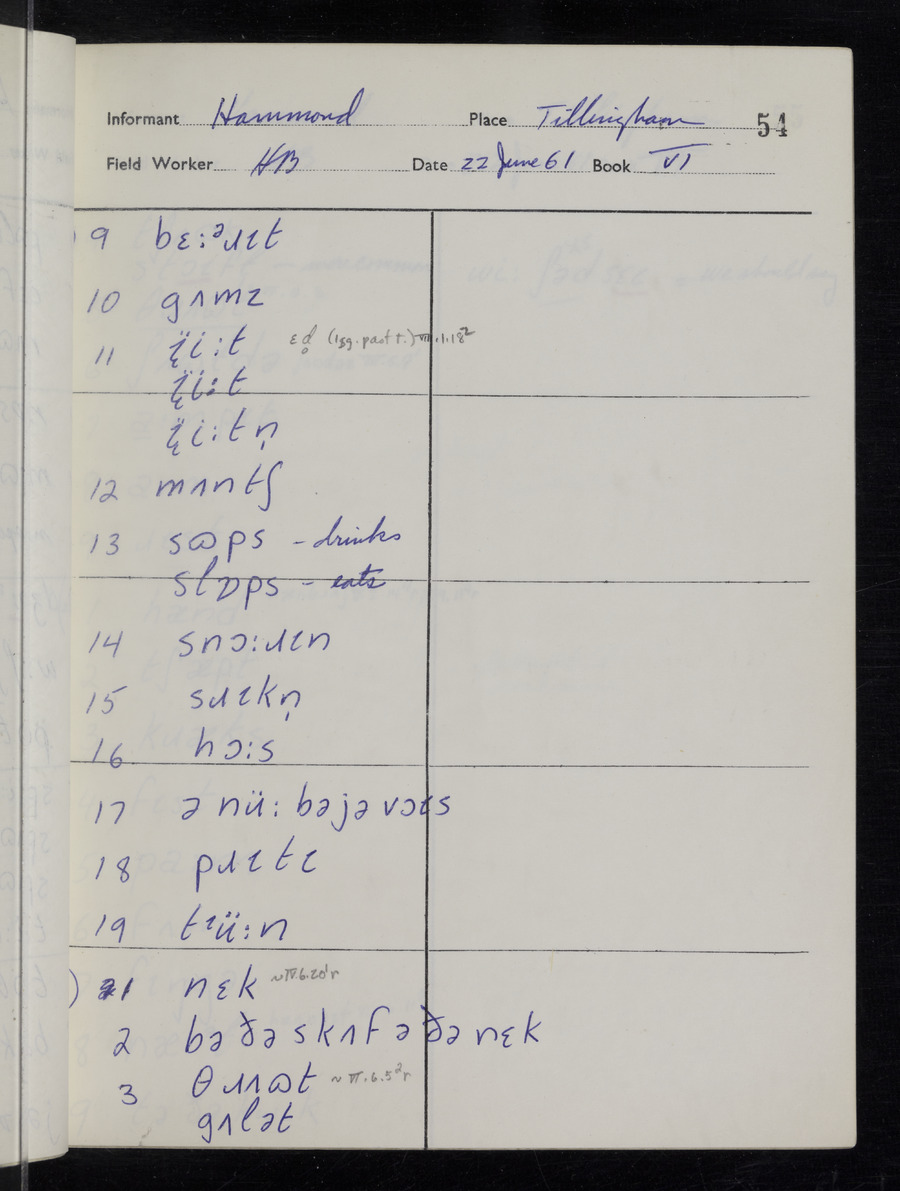 Informant Hammond Place Tillingham 54
Field Worker HB Date 22 June 61 Book VI
9 bɛ:ᵊɹɪt
10 gʌmz
11 ï̞i:t ɛd̥ (1sg. past t.) VIII.1.18²
ï̞i:t
ï̞i:tn̩
12 mʌntʃ
13 sɷps - drinks
slɒps - eats
14 snɔ:ɹɪn
15 sɹɪkn̩
16 hɔ:s
17 ə nü: bəjə vɔɪs
18 pɹɪtɪ
19 tᶦü:n
) 1 nɛk ~ IV.6.20' r
2 bəðəskʌfəðənɛk
3 θɹʌɷt ~ VI.6.5² r
gʌlət